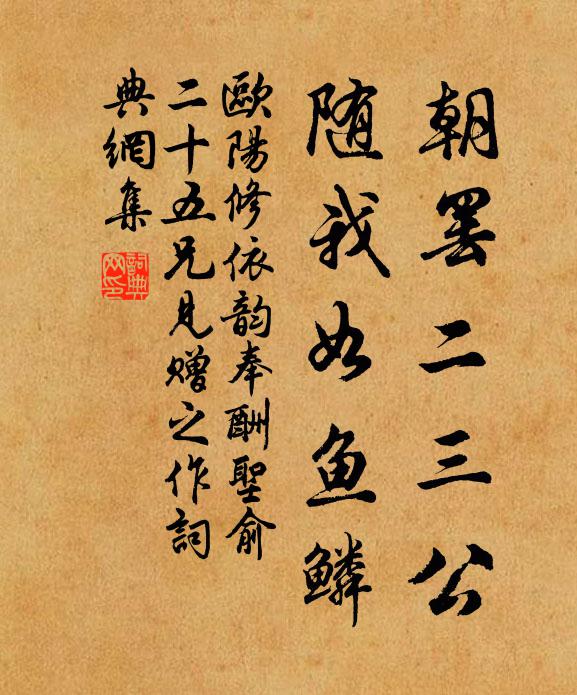 朝罢二三公
随我如鱼鳞
歐陽修依韵奉酬聖俞
二十五兄見赠之作詞
典網集
詞典网印